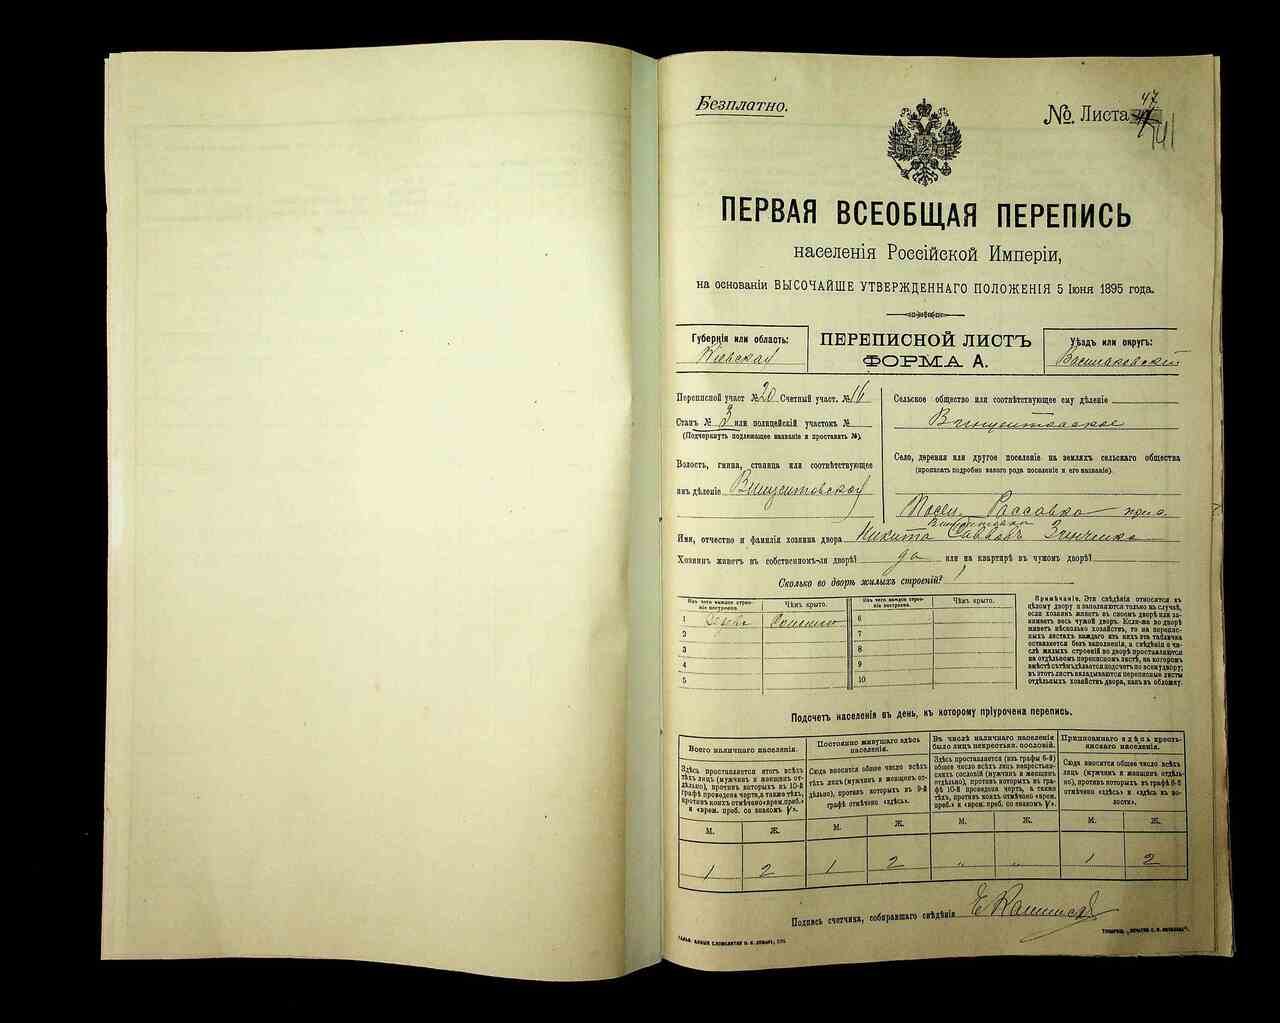 Безплатно.
№. Листа 47
41
ПЕРВАЯ ВСЕОБЩАЯ ПЕРЕПИСЬ
населенія Россійской Имперіи,
на основаніи ВЫСОЧАЙШЕ УТВЕРЖДЕННАГО ПОЛОЖЕНІЯ 5 Іюня 1895 года.
Губернія или область:
Кіевская
ПЕРЕПИСНОЙ ЛИСТЪ
ФОРМА А.
Уѣздъ или округъ:
Васильковскій
Переписной участ № 20 Счетный участ. № 16
Станъ № 3 или полицейскій участокъ №
(Подчеркнуть подлежащее названіе и проставить №).
Волость, гмина, станица или соотвѣтствующее
имъ дѣленіе Винцентовская
Сельское общество или соотвѣтствующее ему дѣленіе
Винцентовское
Село, деревня или другое поселеніе на земляхъ сельскаго общества
(прописать подробно какого рода поселеніе и его названіе).
Посел. Рассавка при с.
Винцентовка
Имя, отчество и фамилія хозяина двора Никита Саввовъ Зинченко
Хозяинъ живетъ въ собственномъ-ли дворѣ? да или на квартирѣ въ чужомъ дворѣ?
Сколько во дворѣ жилыхъ строеній? 1
Изъ чего каждое строеніе построено.
Чѣмъ крыто.
Изъ чего каждое строеніе построено.
Чѣмъ крыто.
1 Дерева Соломою 6
2 7
3 8
4 9
5 10
Примѣчаніе. Эти свѣдѣнія относятся къ
цѣлому двору и заполняются только въ случаѣ,
если хозяинъ живетъ въ своемъ дворѣ или занимаетъ
весь чужой дворъ. Если-же во дворѣ
живетъ нѣсколько хозяйствъ, то на переписныхъ
листахъ каждаго изъ нихъ эта табличка
оставляется безъ заполненія, а свѣдѣнія о числѣ
жилыхъ строеній во дворѣ проставляются
на отдѣльномъ переписномъ листѣ, на которомъ
вмѣстѣ съ тѣмъ дѣлается подсчетъ по всему двору;
въ этотъ листъ вкладываются переписные листы
отдѣльныхъ хозяйствъ двора, какъ въ обложку.
Подсчетъ населенія въ день, къ которому пріурочена перепись.
Всего наличнаго населенія.
Здѣсь проставляется итогъ всѣхъ
тѣхъ лицъ (мужчинъ и женщинъ отдѣльно),
противъ которыхъ въ 10-й
графѣ проведена черта, а также тѣхъ,
противъ коихъ отмѣчено «врем. преб.»
и «врем. преб. со знакомъ V».
Постоянно живущаго здѣсь
населенія.
Сюда вносится общее число всѣхъ
тѣхъ лицъ (мужчинъ и женщинъ отдѣльно),
противъ которыхъ въ 9-й
графѣ отмѣчено «здѣсь».
Въ числѣ наличнаго населенія
было лицъ некрестьян. сословій.
Здѣсь проставляется (изъ графы 6-й)
общее число всѣхъ лицъ некрестьянскихъ
сословій (мужчинъ и женщинъ
отдѣльно), противъ которыхъ въ графѣ
10-й проведена черта, а также
тѣхъ, противъ коихъ отмѣчено «врем.
преб.» и «врем. преб. со знакомъ V».
Приписаннаго здѣсь крестьянскаго
населенія.
Сюда вносится общее число всѣхъ
лицъ (мужчинъ и женщинъ отдѣльно),
противъ которыхъ въ графѣ 8-й
отмѣчено «здѣсь» и «здѣсь въ волости».
М. Ж. М. Ж. М. Ж. М. Ж.
1 2 1 2 „ „ 1 2
Подпись счетчика, собиравшаго свѣдѣнія